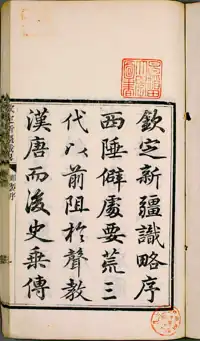 欽定新疆識略序
西陲僻處要荒三
代以前阻於聲教
漢唐而後史乘傳